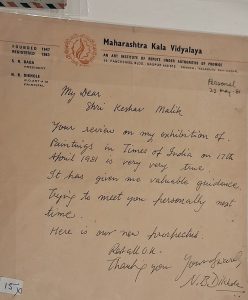 FOUNDED 1947
REGISTERED 1963
S. K. DAGA
PRESIDENT
N. B. DIKHOLE
Maharashtra Kala Vidyalaya
AN ART INSTITUTE OF REPUTE UNDER AUTHORITIES OF PROMISE
Personal
23 May 81
My Dear
Shri Keshav Malik
Your review on my exhibition of
Paintings in Times of India on 17th
April 1981 is very very true
It has given me valuable guidance,
Trying to meet you personally next
time.
Here is our new prospectus.
Rest all O.K.
Thanking you
Yours
N.B. Dikhole
15